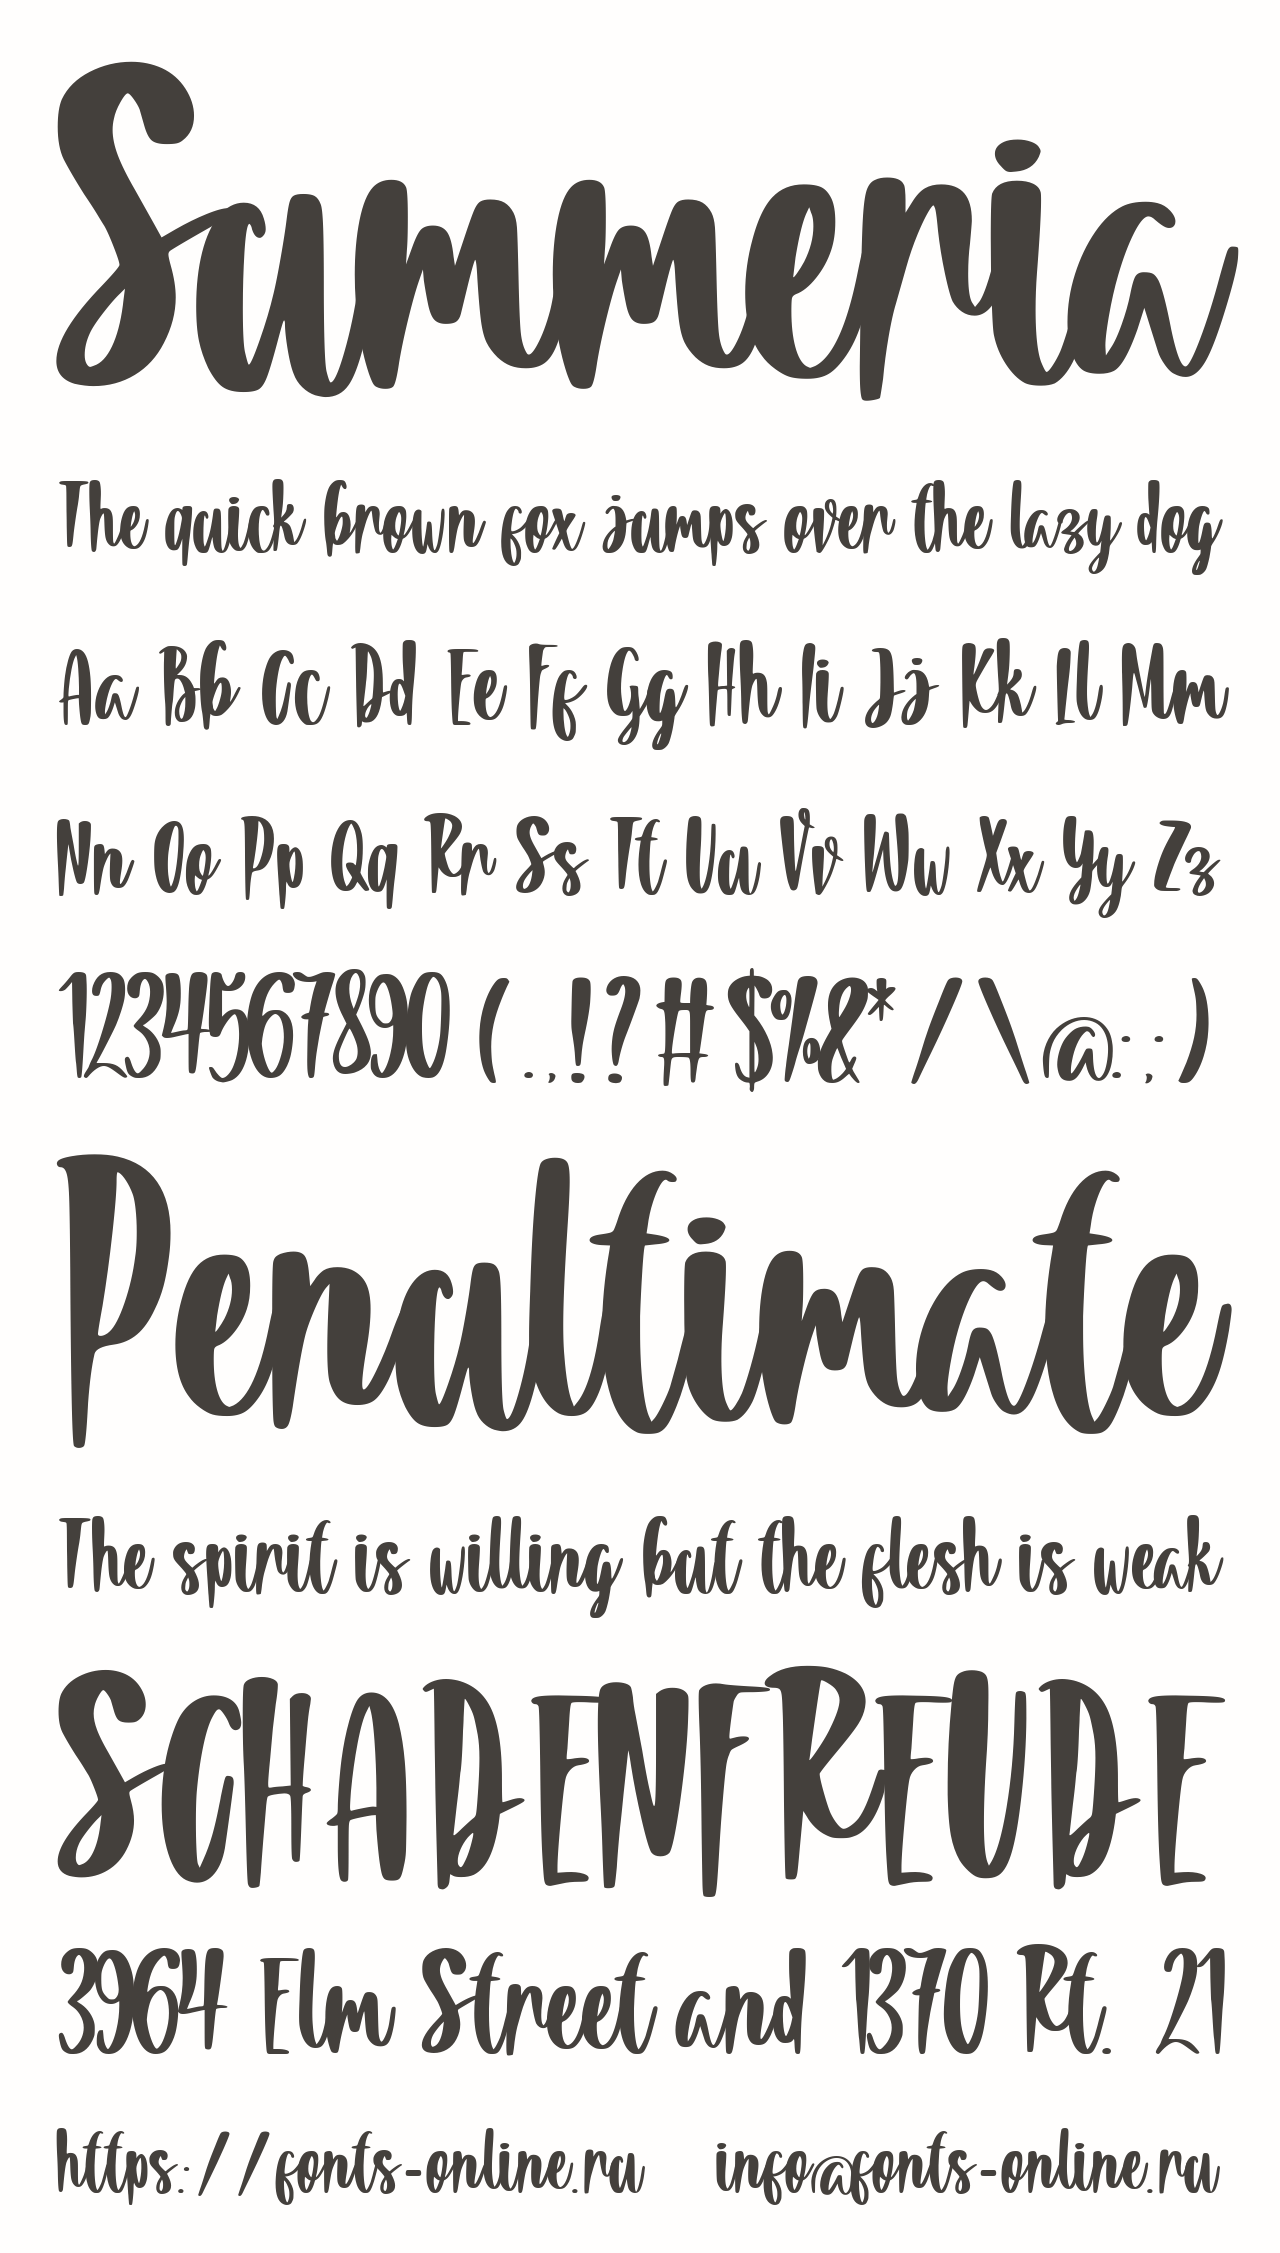 Summeria
The quick brown fox jumps over the lazy dog
Aa Bb Cc Dd Ee Ff Gg Hh Ii Jj Kk Ll Mm
Nn Oo Pp Qq Rr Ss Tt Uu Vv Ww Xx Yy Zz
1234567890 (.,!?#$%&*/\@:;)
Penultimate
The spirit is willing but the flesh is weak
SCHADENFREUDE
3964 Elm Street and 1370 Rt. 21
https://fonts-online.ru info@fonts-online.ru